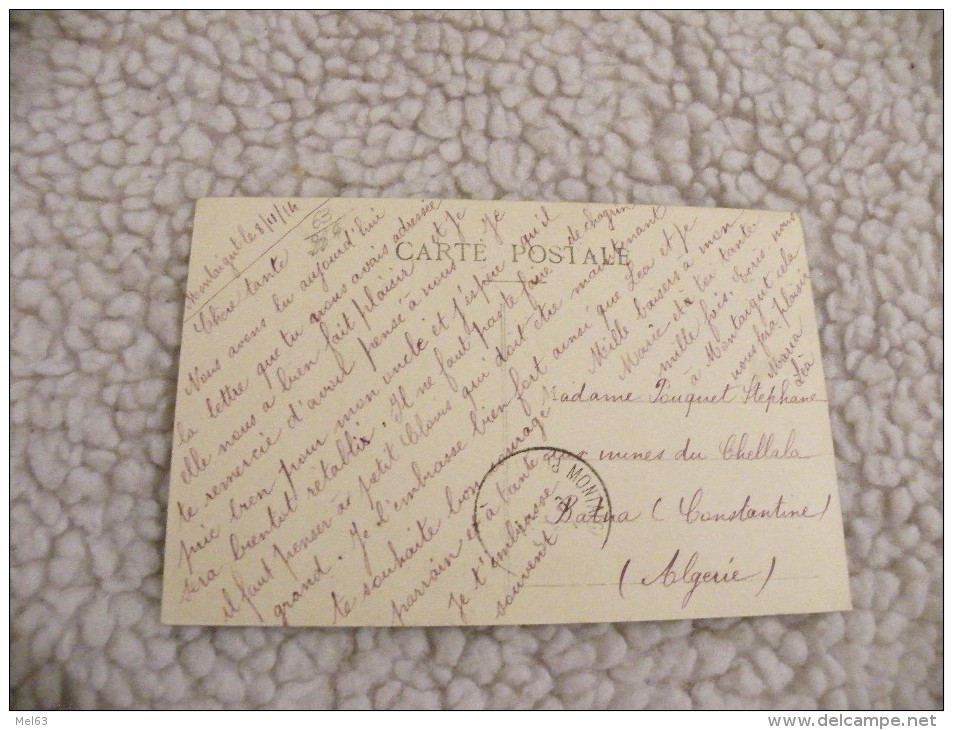 Montaigut le 8/11/14
63
CARTE POSTALE
Chère tante
Nous avons lu aujourd'hui
la lettre que tu nous avais adressée
elle nous a bien fait plaisir et je
te remercie d'avoir pensé à nous. Je
prie bien pour mon oncle et j'espère qu'il
sera bientot rétablir. Il ne faut pas te faire de chagrin
il faut penser à petit Clovis qui doit être maintenant
grand. Je t'embrasse bien fort ainsi que Léa et je
te souhaite bon courage Mille baisers à mon
parrain et à tante Marie et ta tante
Je t'embrasse mille fois. Ecris nous
souvent à Montaigut cela
nous fera plaisir
Maria
Léa
Madame Pouquet Stéphane
aux mines du Chellala
Batna (Constantine)
(Algerie)
MONTAIG
Mel63
www.delcampe.net